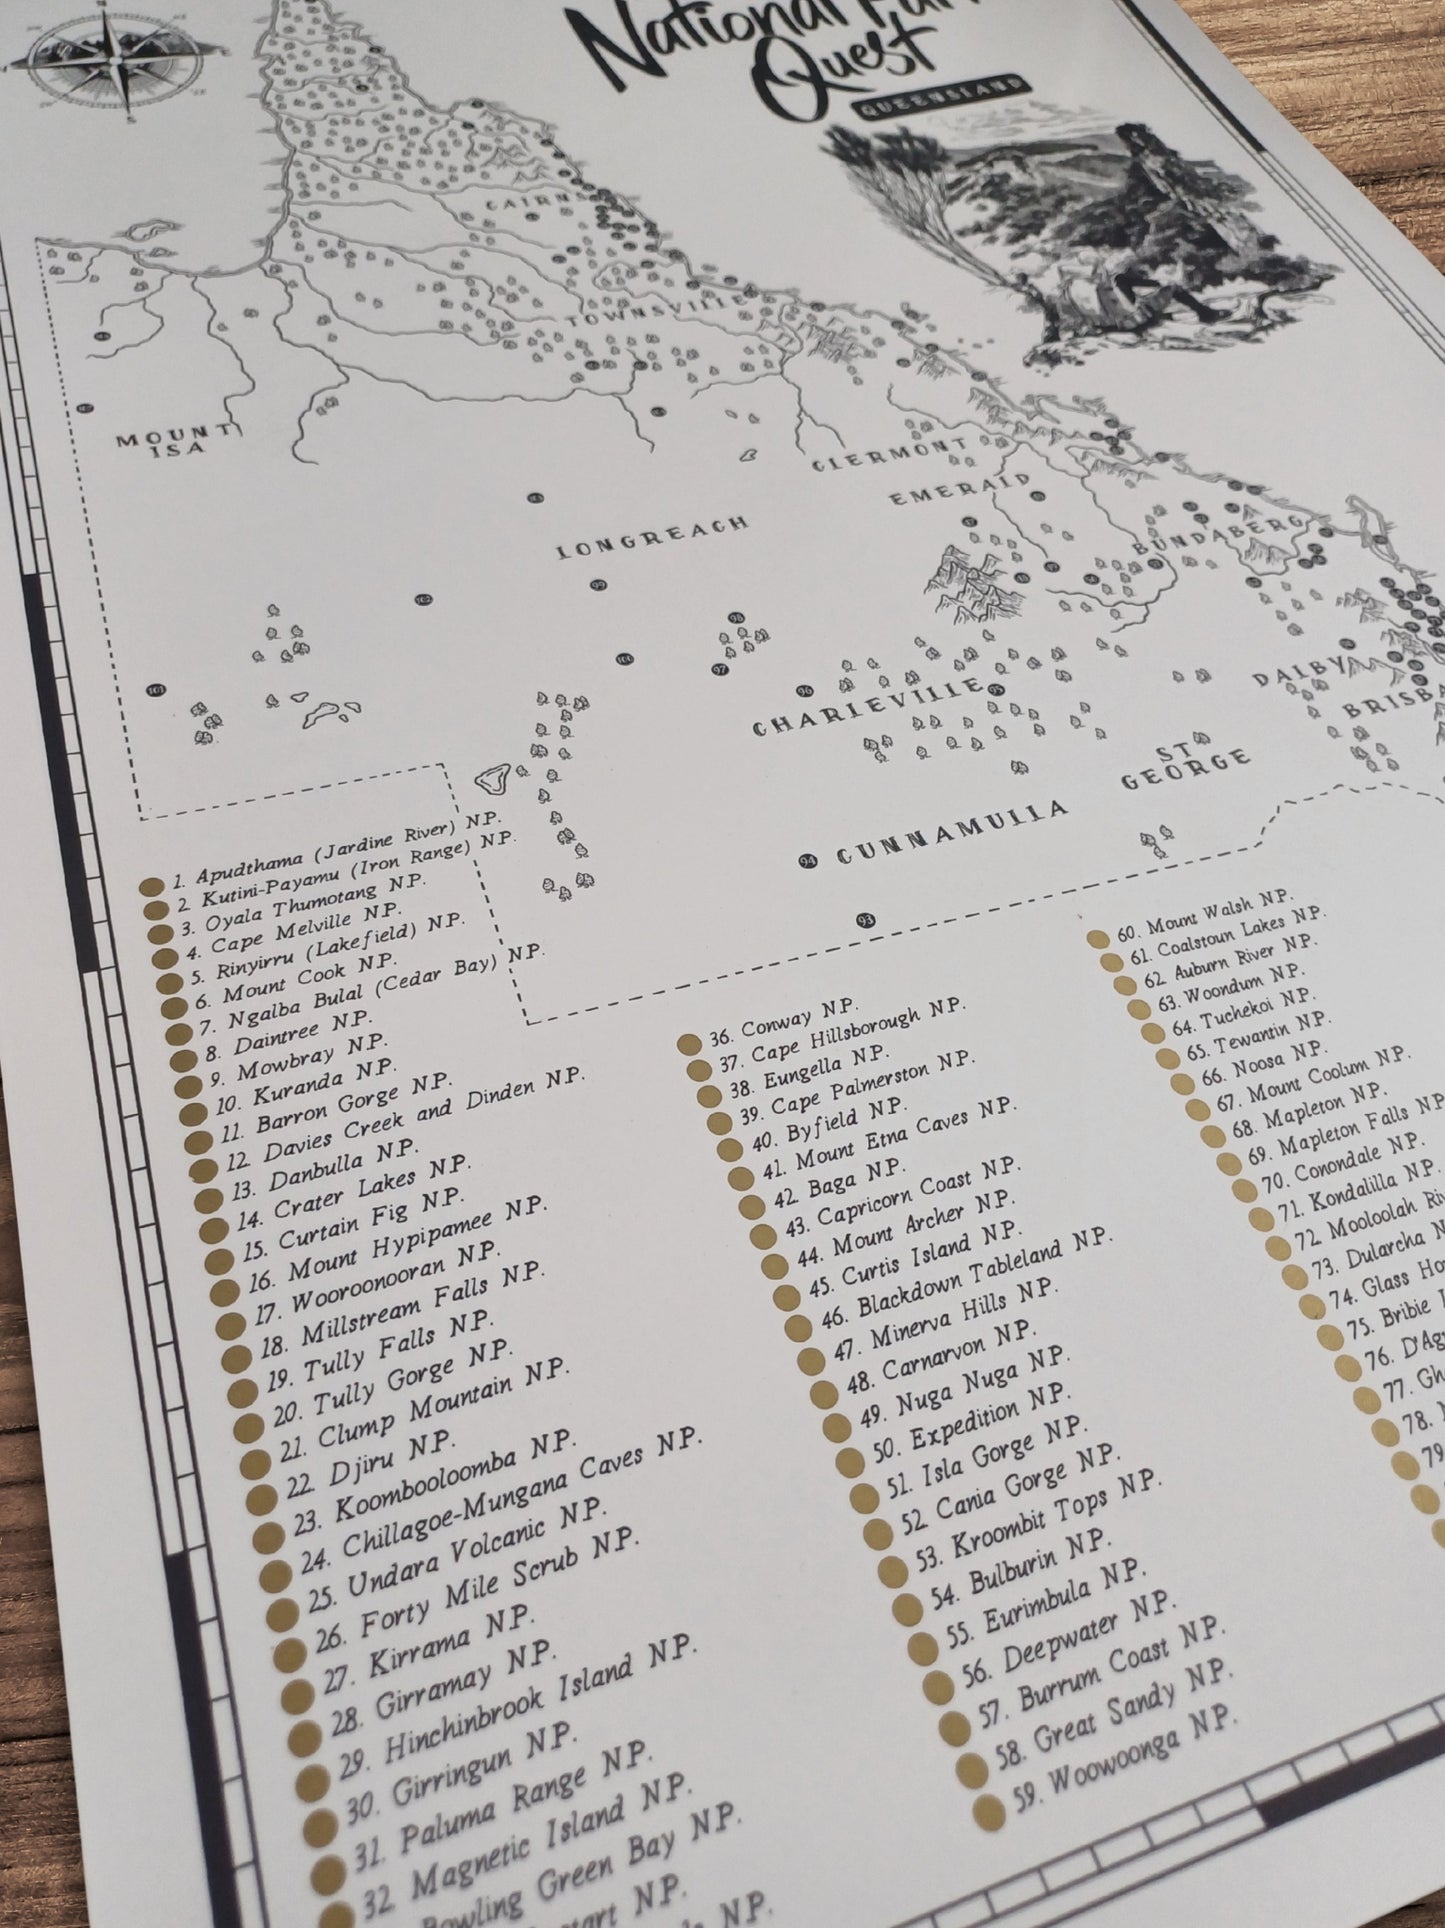 National
Quest
QUEENSLAND
CAIRNS
TOWNSVILLE
MOUNT
ISA
CLERMONT
EMERALD
LONGREACH
BUNDABERG
99
98
97
96
101
CHARLEVILLE
DALBY
ST
GEORGE
CUNNAMULLA
94
93
1. Apudthama (Jardine River) N.P.
2. Kutini-Payamu (Iron Range) N.P.
3. Oyala Thumotang N.P.
4. Cape Melville N.P.
5. Rinyirru (Lakefield) N.P.
6. Mount Cook N.P.
7. Ngalba Bulal (Cedar Bay) N.P.
8. Daintree N.P.
9. Mowbray N.P.
10. Kuranda N.P.
11. Barron Gorge N.P.
12. Davies Creek and Dinden N.P.
13. Danbulla N.P.
14. Crater Lakes N.P.
15. Curtain Fig N.P.
16. Mount Hypipamee N.P.
17. Wooroonooran N.P.
18. Millstream Falls N.P.
19. Tully Falls N.P.
20. Tully Gorge N.P.
21. Clump Mountain N.P.
22. Djiru N.P.
23. Koombooloomba N.P.
24. Chillagoe-Mungana Caves N.P.
25. Undara Volcanic N.P.
26. Forty Mile Scrub N.P.
27. Kirrama N.P.
28. Girramay N.P.
29. Hinchinbrook Island N.P.
30. Girringun N.P.
31. Paluma Range N.P.
32. Magnetic Island N.P.
Bowling Green Bay N.P.
N.P.
N.P.
36. Conway N.P.
37. Cape Hillsborough N.P.
38. Eungella N.P.
39. Cape Palmerston N.P.
40. Byfield N.P.
41. Mount Etna Caves N.P.
42. Baga N.P.
43. Capricorn Coast N.P.
44. Mount Archer N.P.
45. Curtis Island N.P.
46. Blackdown Tableland N.P.
47. Minerva Hills N.P.
48. Carnarvon N.P.
49. Nuga Nuga N.P.
50. Expedition N.P.
51. Isla Gorge N.P.
52. Cania Gorge N.P.
53. Kroombit Tops N.P.
54. Bulburin N.P.
55. Eurimbula N.P.
56. Deepwater N.P.
57. Burrum Coast N.P.
58. Great Sandy N.P.
59. Woowoonga N.P.
60. Mount Walsh N.P.
61. Coalstoun Lakes N.P.
62. Auburn River N.P.
63. Woondum N.P.
64. Tuchekoi N.P.
65. Tewantin N.P.
66. Noosa N.P.
67. Mount Coolum N.P.
68. Mapleton N.P.
69. Mapleton Falls N.P.
70. Conondale N.P.
71. Kondalilla N.P.
72. Mooloolah
73. Dularcha
74. Glass
75. Bribie
76.
77.
78.
79